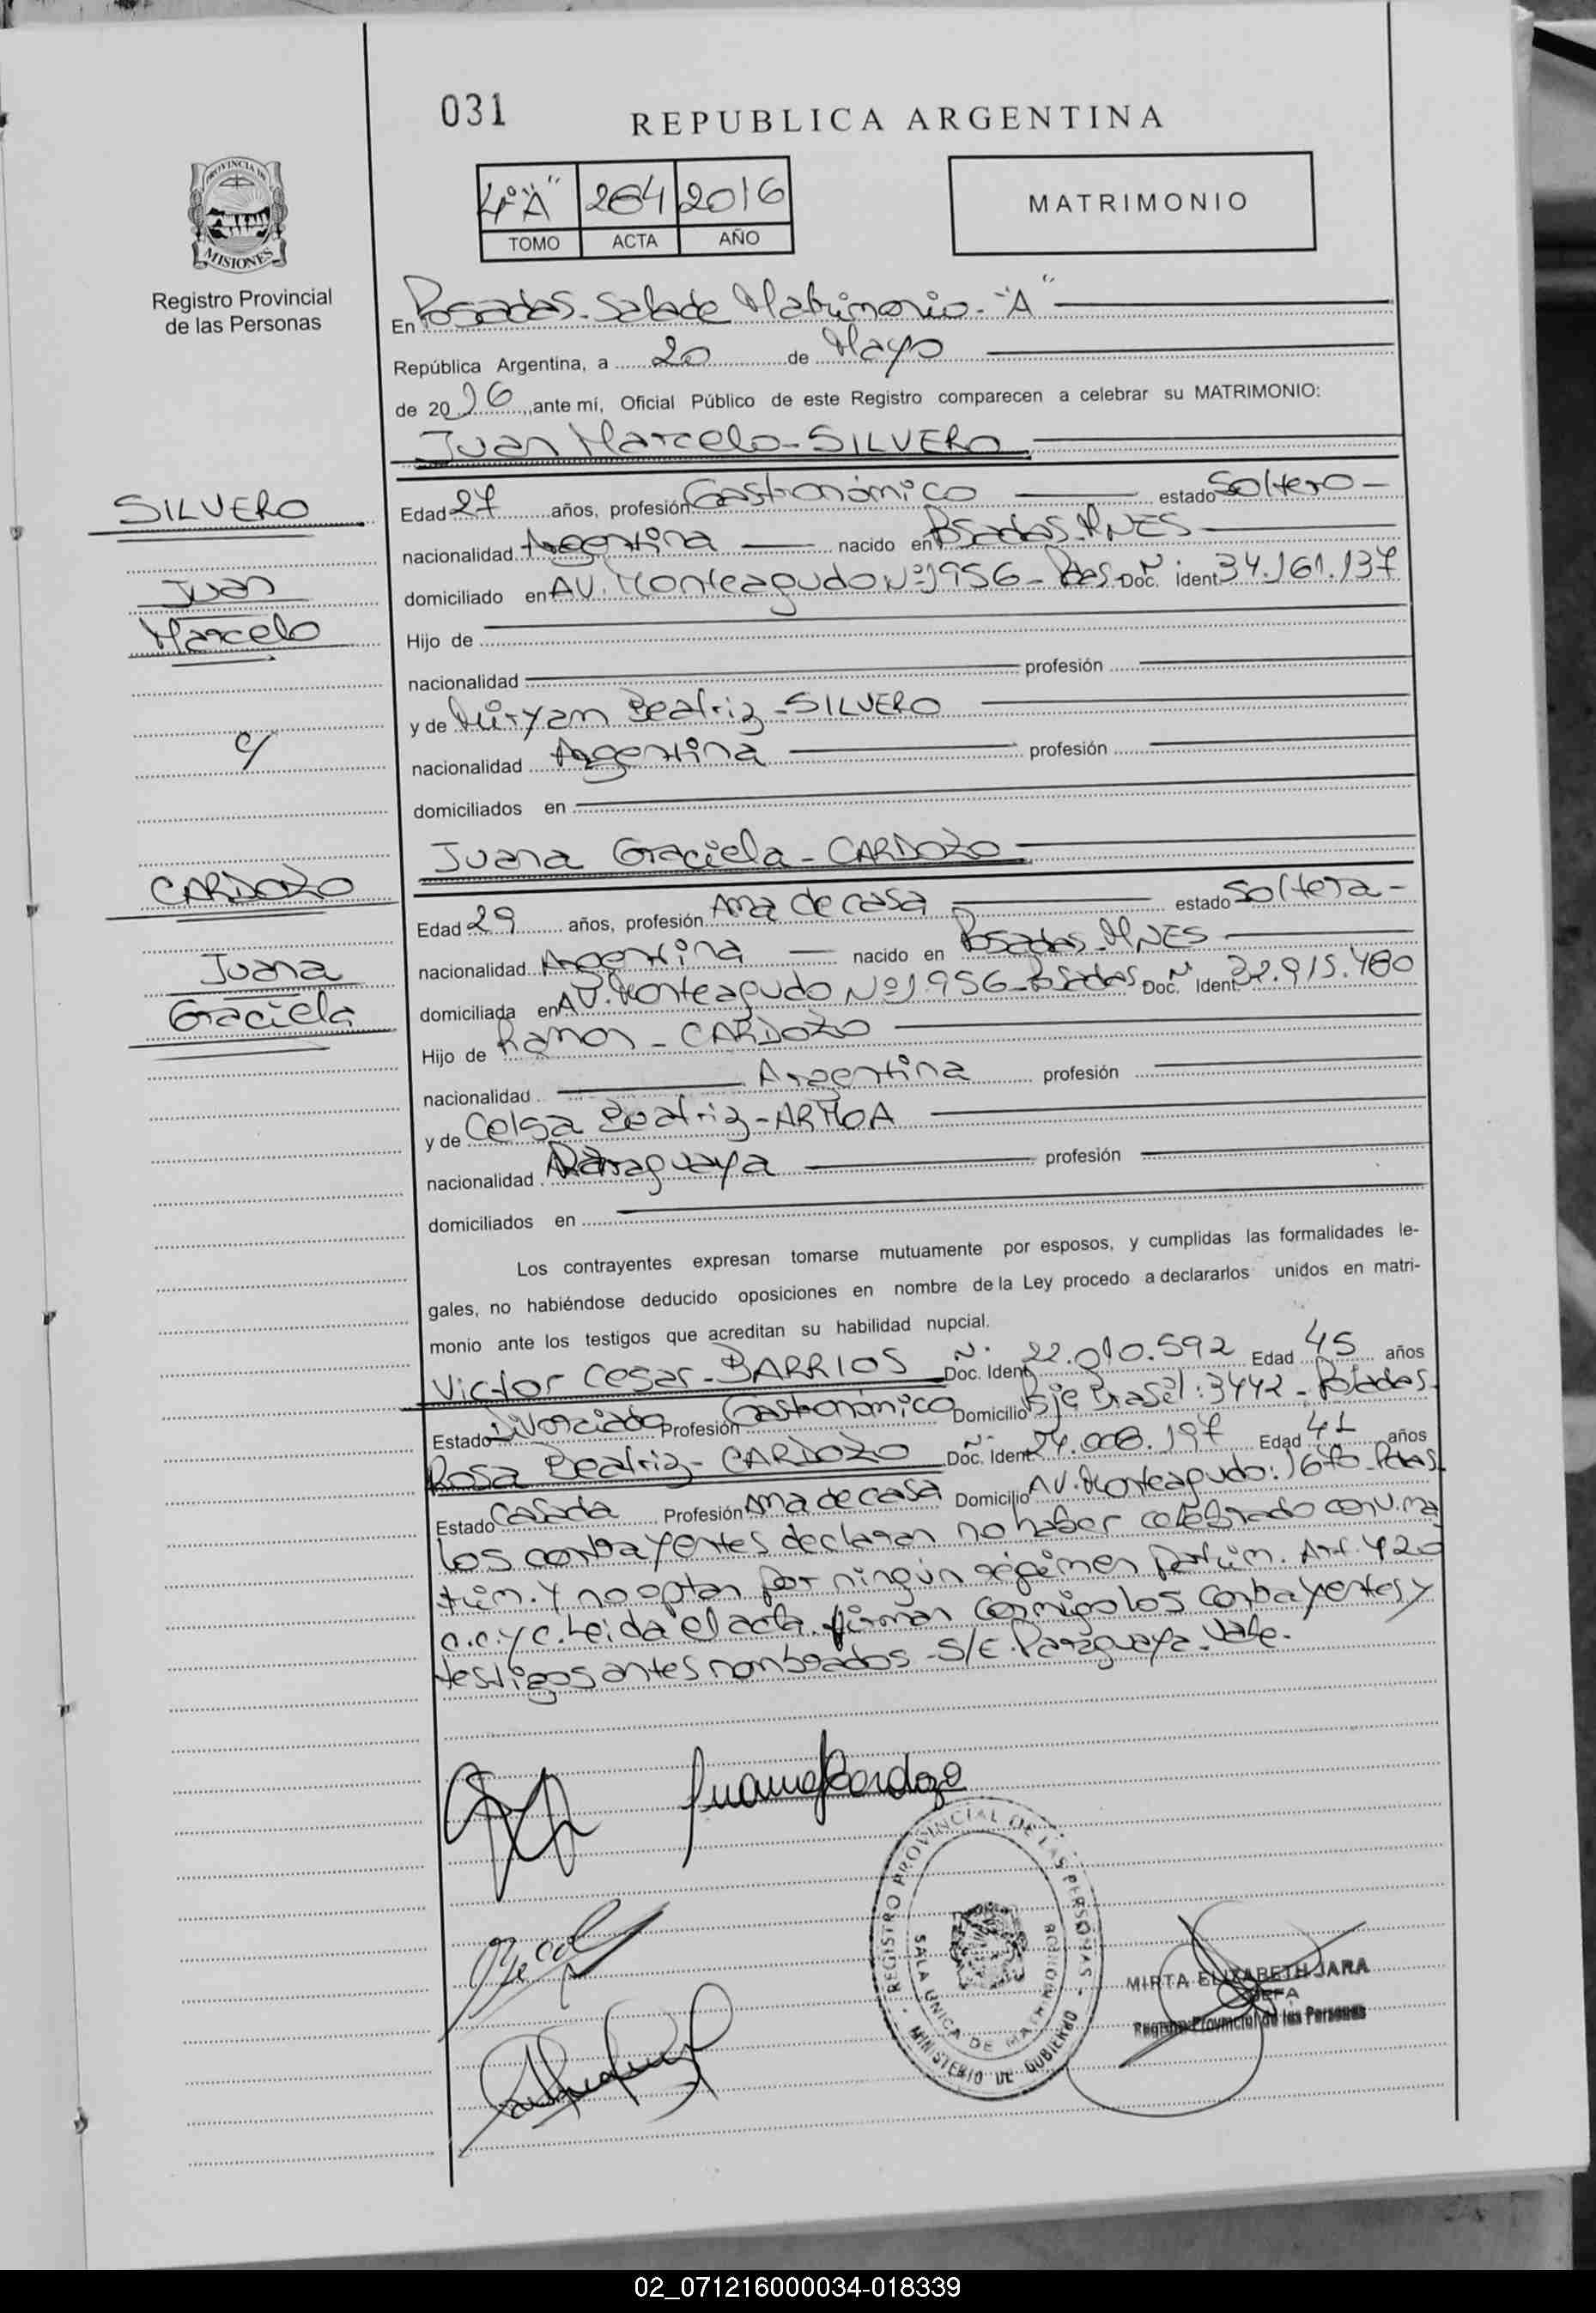 031
REPUBLICA ARGENTINA
PROVINCIA DE
MISIONES
Registro Provincial
de las Personas
4º "A" 264 2016
TOMO ACTA AÑO
MATRIMONIO
En Posadas - Sala de Matrimonio - "A"
República Argentina, a 20 de Mayo
de 20 16, ante mí, Oficial Público de este Registro comparecen a celebrar su MATRIMONIO:
Juan Marcelo - SILVERO
SILVERO
Juan
Marcelo
c/
CARDOZO
Juana
Graciela
Edad 27 años, profesión Gastronómico estado Soltero -
nacionalidad Argentina nacido en Posadas - MNES
domiciliado en AV. Monteagudo Nº 1956 - Pdas - Doc. Nº Ident 34.161.137
Hijo de
nacionalidad profesión
y de Miryam Beatriz - SILVERO
nacionalidad Argentina profesión
domiciliados en
Juana Graciela - CARDOZO
Edad 29 años, profesión Ama de casa estado Soltera -
nacionalidad Argentina nacido en Posadas - MNES
domiciliada en AV. Monteagudo Nº 1956 - Posadas Doc. Nº Ident 32.915.480
Hijo de Ramon - CARDOZO
nacionalidad Argentina profesión
y de Celsa Beatriz - ARMOA
nacionalidad Paraguaya profesión
domiciliados en
Los contrayentes expresan tomarse mutuamente por esposos, y cumplidas las formalidades le-
gales, no habiéndose deducido oposiciones en nombre de la Ley procedo a declararlos unidos en matri-
monio ante los testigos que acreditan su habilidad nupcial.
Victor Cesar - BARRIOS Doc. Nº Ident 22.010.592 Edad 45 años
Estado Divorciado Profesión Gastronómico Domicilio Pje Brasil: 3442 - Posadas -
Rosa Beatriz - CARDOZO Doc. Nº Ident 24.008.197 Edad 41 años
Estado Casada Profesión Ama de casa Domicilio AV. Monteagudo: Pdas
Los contrayentes declaran no haber celebrado conv. ma
trim. y no optan por ningún régimen patrim. Art. 420
c.c.y c. Leida el acta, firman conmigo los contrayentes y
testigos antes nombrados - S/E. Paraguaya. Vale -
Juana Cardozo
REGISTRO PROVINCIAL DE LAS PERSONAS
SALA UNICA DE MATRIMONIOS
MINISTERIO DE GOBIERNO
MIRTA ELIZABETH JARA
JEFA
Registro Provincial de las Personas
02_071216000034-018339